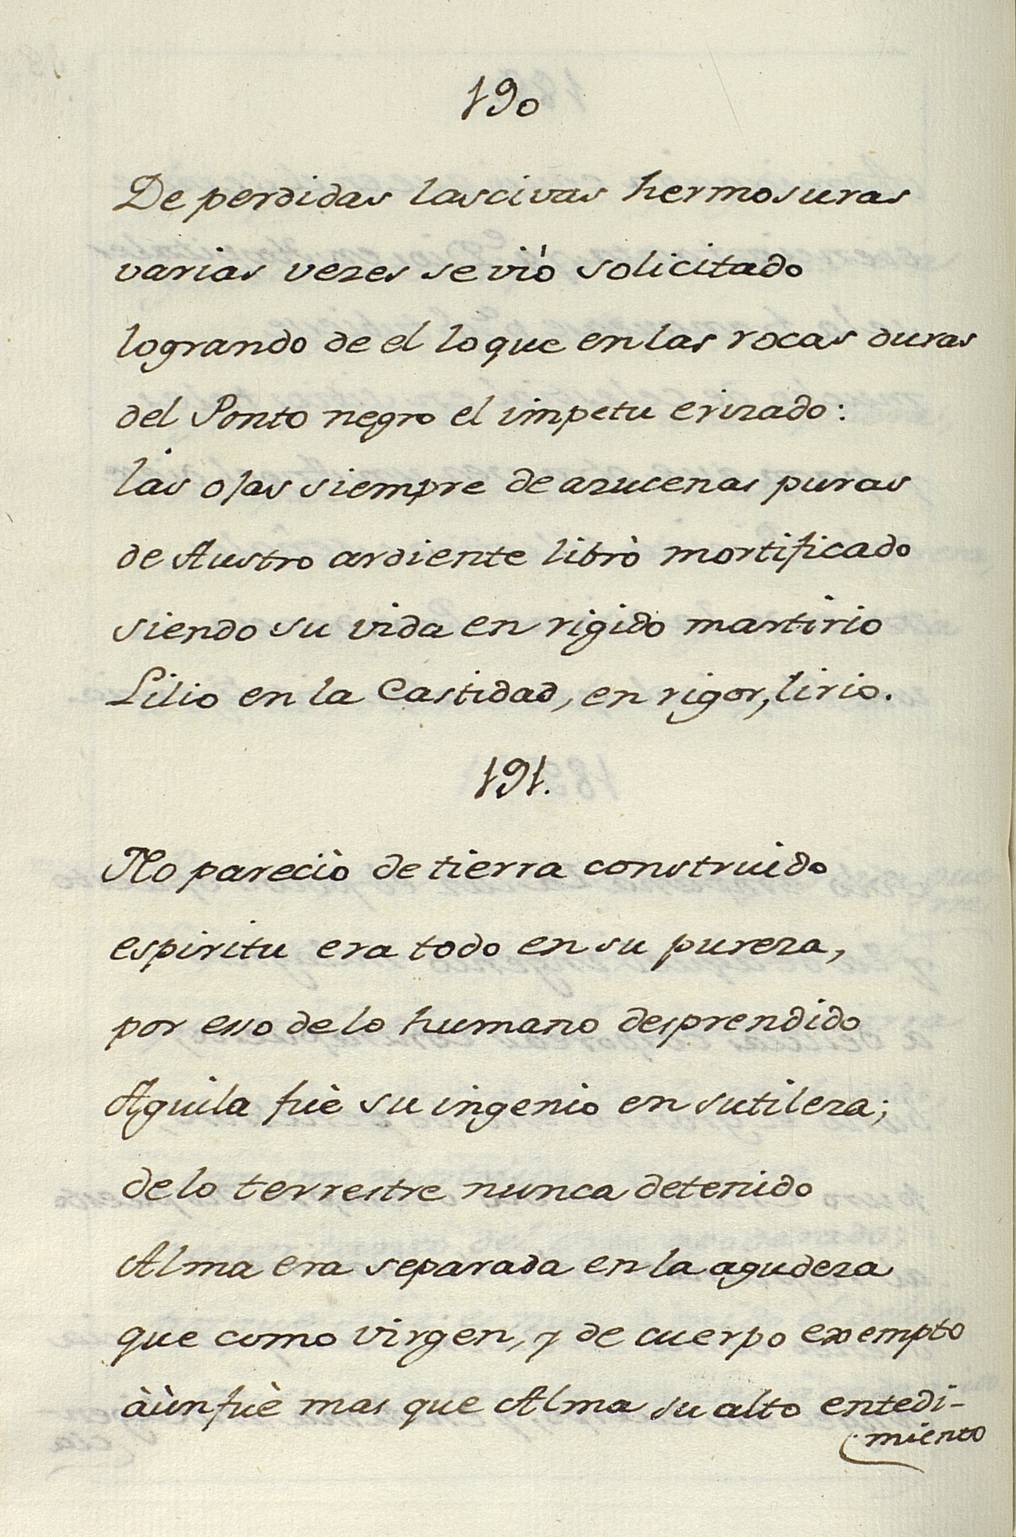 190
De perdidas lascivas hermosuras
varias vezes se viò solicitado
logrando de el lo que en las rocas duras
del Ponto negro el impetu erizado:
las ojas siempre de azucenas puras
de Austro ardiente librò mortificado
siendo su vida en rigido martirio
Lilio en la Castidad, en rigor, lirio.
191.
No pareciò de tierra construido
espiritu era todo en su pureza,
por esso de lo humano desprendido
Aguila fuè su ingenio en sutileza;
de lo terrestre nunca detenido
Alma era separada en la agudeza
que como virgen, y de cuerpo exempto
àùn fuè mas que Alma su alto entedi-
miento